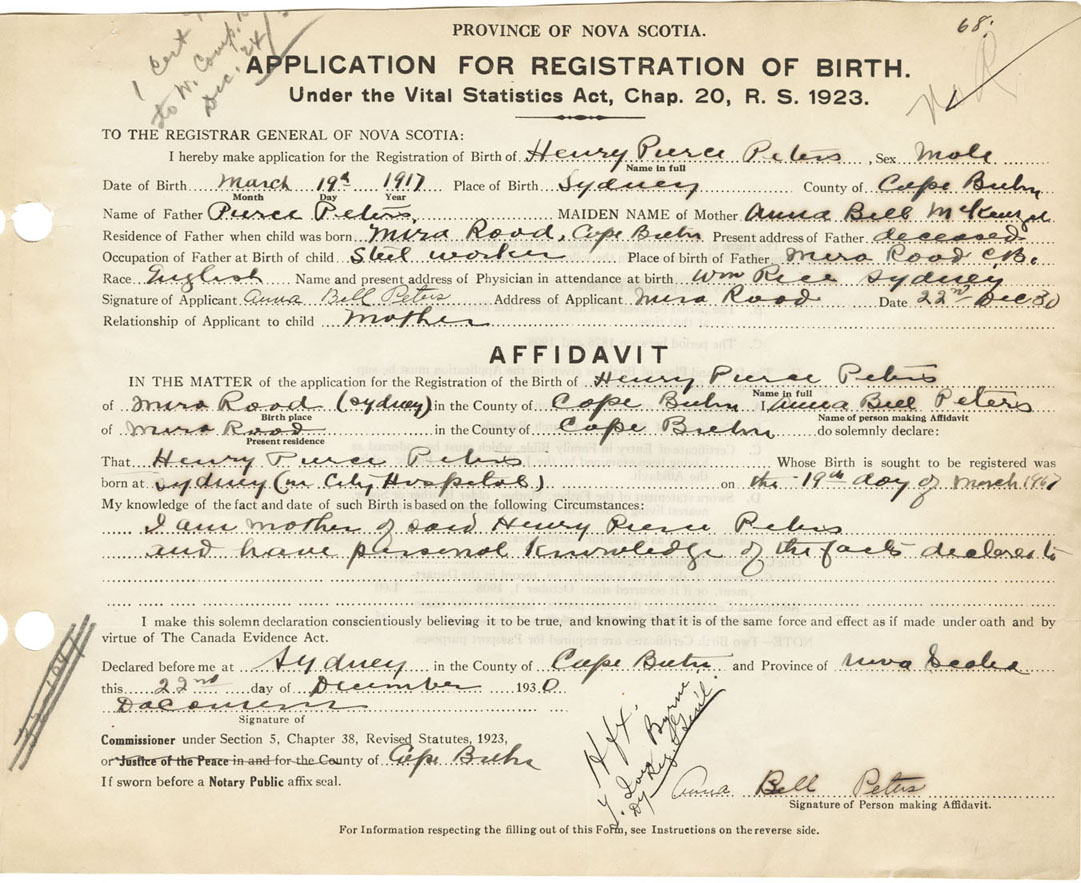 1 Cert
to W. Comp.
Dec.
68.
PROVINCE OF NOVA SCOTIA.
APPLICATION FOR REGISTRATION OF BIRTH.
Under the Vital Statistics Act, Chap. 20, R. S. 1923.
TO THE REGISTRAR GENERAL OF NOVA SCOTIA:
I hereby make application for the Registration of Birth of Henry Pierce Peters, Sex Male
Name in full
Date of Birth March 19th 1917 Place of Birth Sydney County of Cape Breton
Month Day Year
Name of Father Pierce Peters, MAIDEN NAME of Mother Anna Bell McKenzie
Residence of Father when child was born Mira Road, Cape Breton Present address of Father deceased
Occupation of Father at Birth of child Steel worker Place of birth of Father Mira Road C.B.
Race English Name and present address of Physician in attendance at birth Wm Rice Sydney
Signature of Applicant Anna Bell Peters Address of Applicant Mira Road Date 22nd Dec 30
Relationship of Applicant to child Mother
AFFIDAVIT
IN THE MATTER of the application for the Registration of the Birth of Henry Pierce Peters
Name in full
of Mira Road (Sydney) in the County of Cape Breton I, Anna Bell Peters
Birth place Name of person making Affidavit
of Mira Road in the County of Cape Breton do solemnly declare:
Present residence
That Henry Pierce Peters Whose Birth is sought to be registered was
born at Sydney (in City Hospital) on the 19th day of March 1917
My knowledge of the fact and date of such Birth is based on the following Circumstances:
I am mother of said Henry Pierce Peters
and have personal knowledge of the facts declared to
I make this solemn declaration conscientiously believing it to be true, and knowing that it is of the same force and effect as if made under oath and by
virtue of The Canada Evidence Act.
Declared before me at Sydney in the County of Cape Breton and Province of Nova Scotia
this 22nd day of December 1930
Signature of
Commissioner under Section 5, Chapter 38, Revised Statutes, 1923,
or Justice of the Peace in and for the County of Cape Breton
If sworn before a Notary Public affix seal.
Hfx.
Byrne
Dy Reg. Gen'l.
Anna Bell Peters
Signature of Person making Affidavit.
For Information respecting the filling out of this Form, see Instructions on the reverse side.